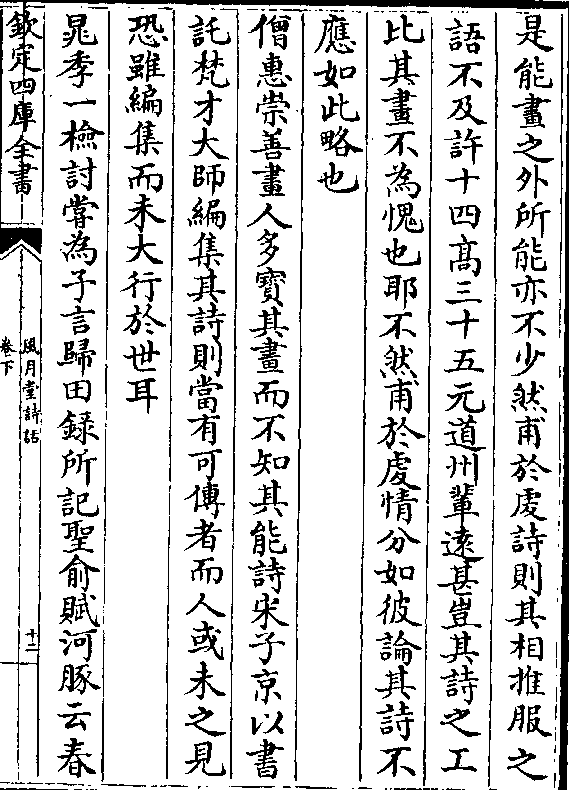 是能畫之外所能亦不少然甫於虔詩則其相推服之
語不及許十四高三十五元道州輩逺甚豈其詩之工
比其畫不為愧也耶不然甫於虔情分如彼論其詩不
應如此略也
僧惠崇善畫人多寳其畫而不知其能詩宋子京以書
託梵才大師編集其詩則當有可傳者而人或未之見
恐雖編集而未大行於世耳
晁季一檢討嘗為予言歸田錄所記聖俞賦河豚云春
欽定四庫全書
風月堂詩話
卷下
十二